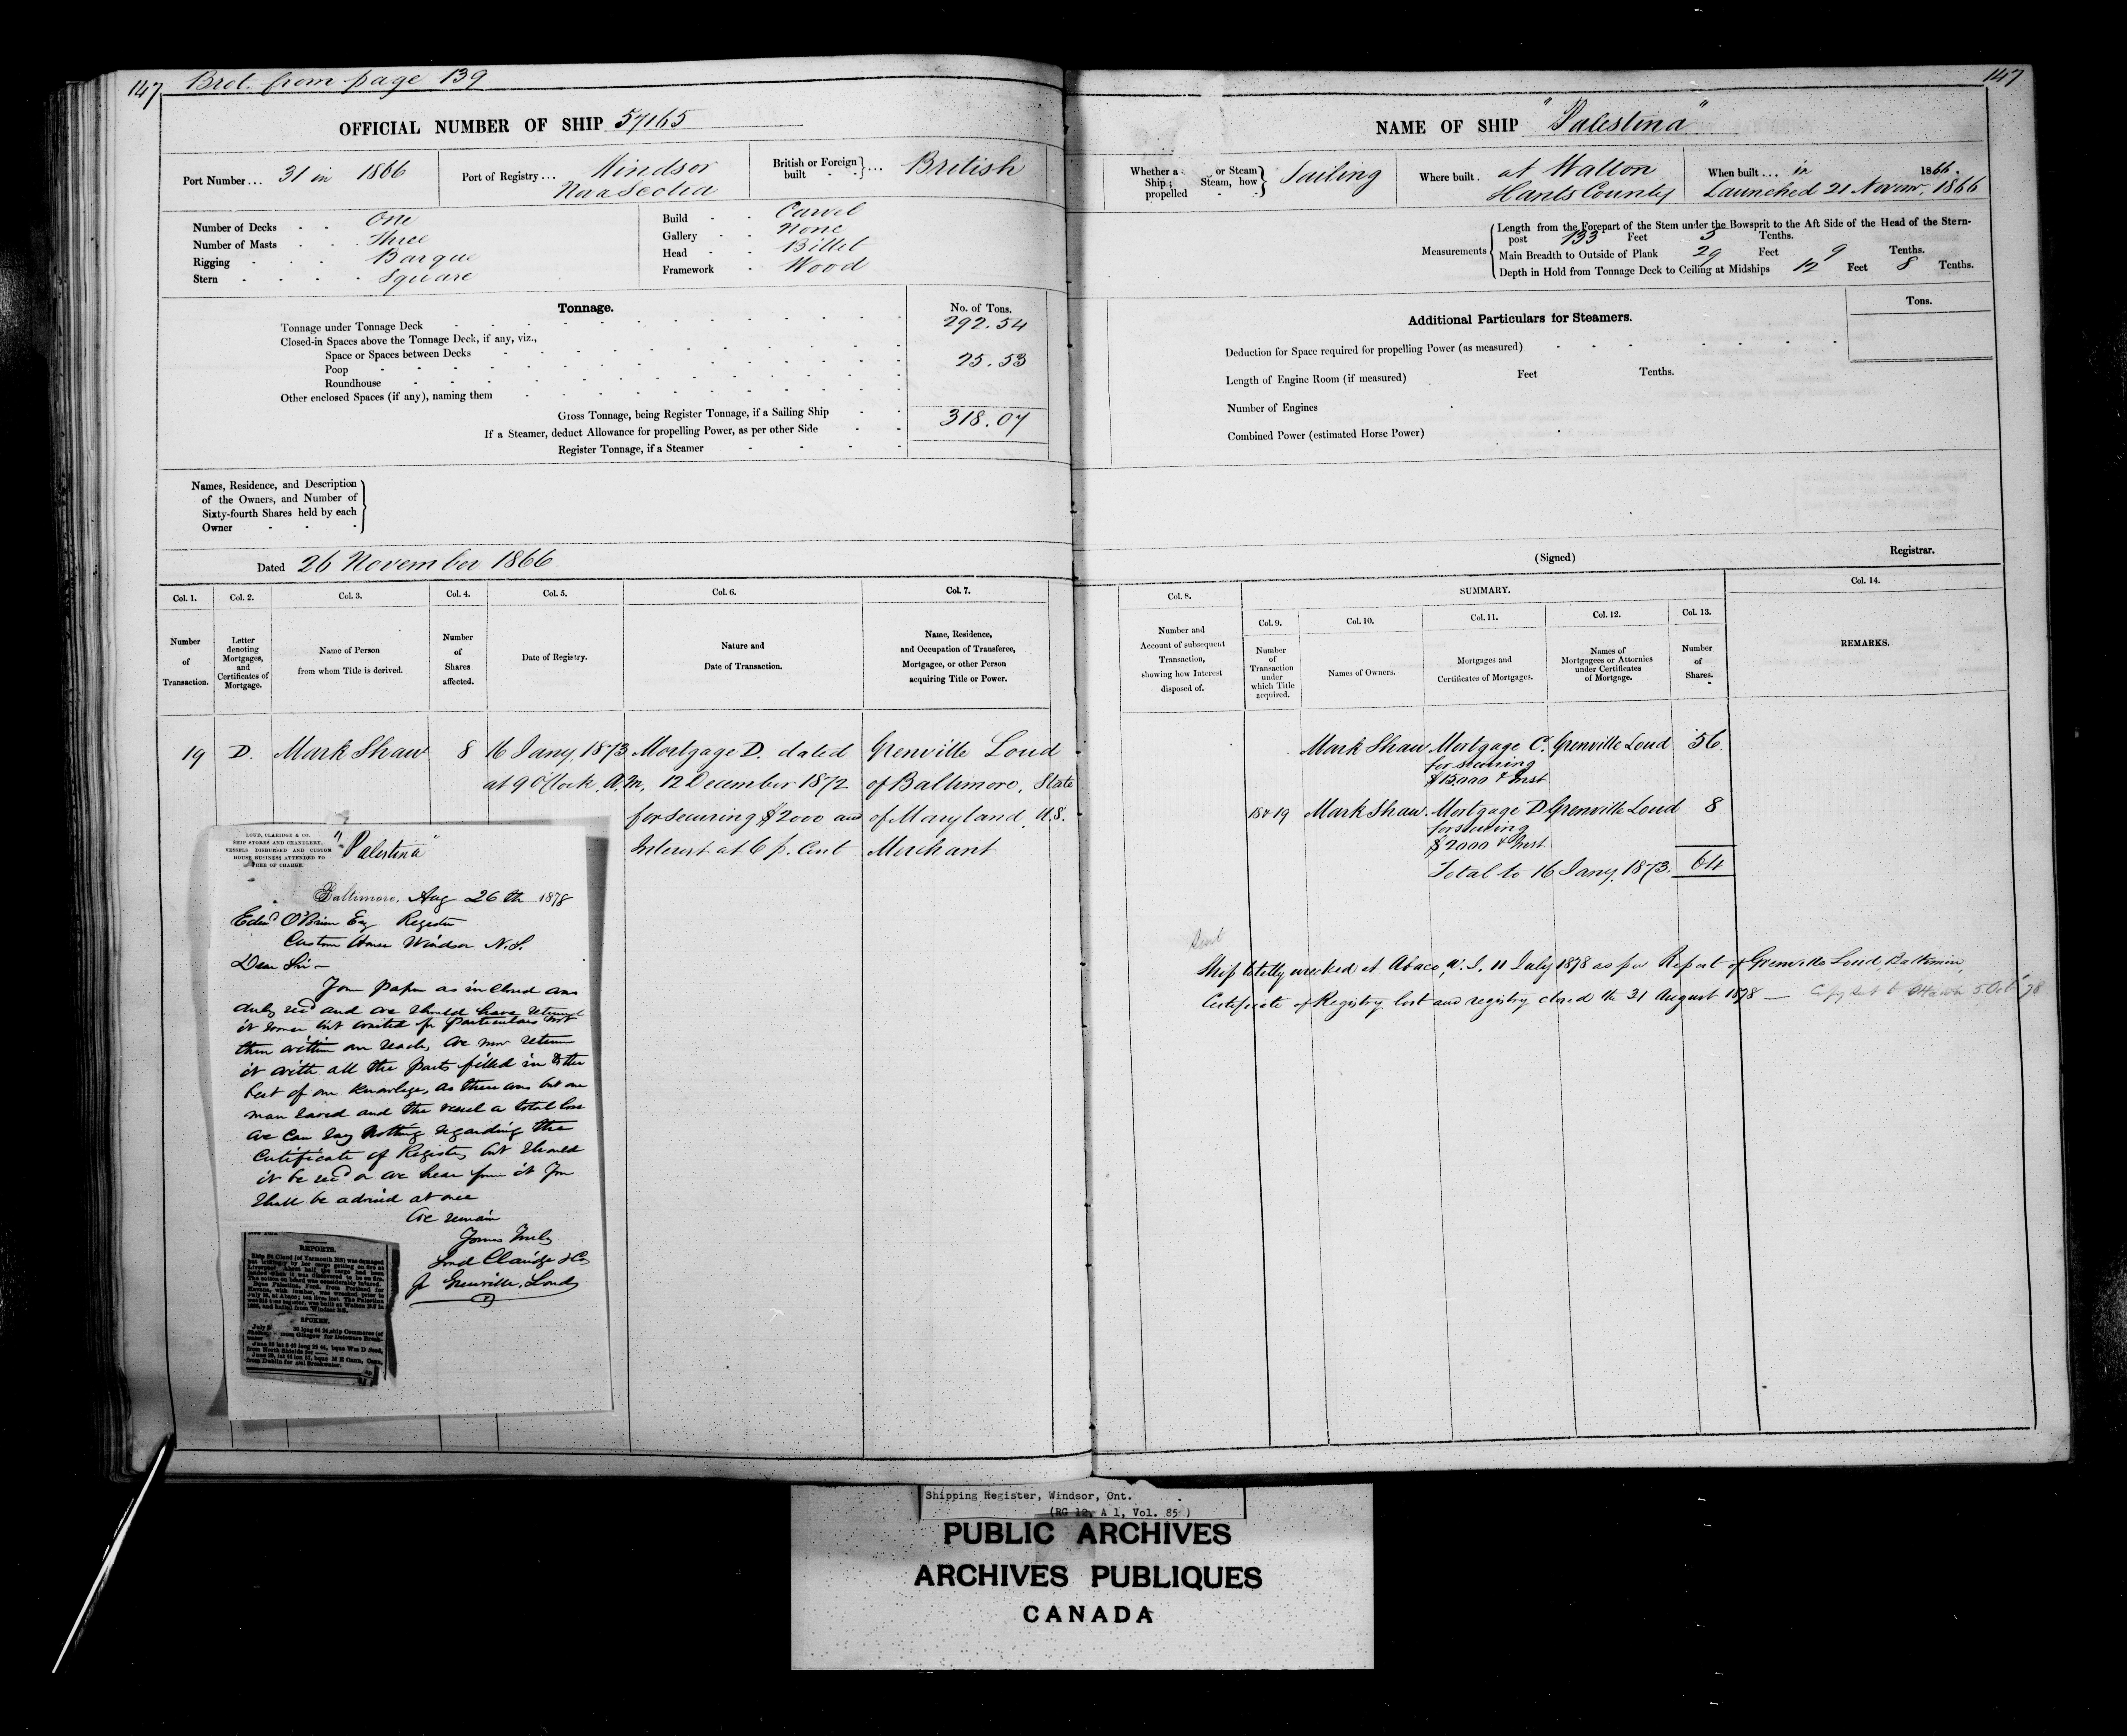 147 Brot. from page 139
OFFICIAL NUMBER OF SHIP 57165
Port Number... 31 in 1866
Port of Registry... Windsor
Nova Scotia
British or Foreign built } ... British
Number of Decks One
Number of Masts Three
Rigging Barque
Stern Square
Build Carvel
Gallery None
Head Billet
Framework Wood
Tonnage.
No. of Tons.
Tonnage under Tonnage Deck 292.54
Closed-in Spaces above the Tonnage Deck, if any, viz.,
Space or Spaces between Decks
Poop 25.53
Roundhouse
Other enclosed Spaces (if any), naming them
Gross Tonnage, being Register Tonnage, if a Sailing Ship 318.07
If a Steamer, deduct Allowance for propelling Power, as per other Side
Register Tonnage, if a Steamer
Names, Residence, and Description
of the Owners, and Number of
Sixty-fourth Shares held by each
Owner
Dated 26 November 1866
Col. 1. Col. 2. Col. 3. Col. 4. Col. 5. Col. 6. Col. 7.
Number of Transaction.
Letter denoting Mortgages, and Certificates of Mortgage.
Name of Person from whom Title is derived.
Number of Shares affected.
Date of Registry.
Nature and Date of Transaction.
Name, Residence, and Occupation of Transferee, Mortgagee, or other Person acquiring Title or Power.
19 D. Mark Shaw 8 16 Jany, 1873 Mortgage D. dated Grenville Loud
at 9 O'Clock, A.M. 12 December 1872 of Baltimore, State
for securing $2000 and of Maryland, U.S.
Interest at 6 p. Cent Merchant
LOUD, CLARIDGE & CO.
SHIP STORES AND CHANDLERY,
VESSELS DISBURSED AND CUSTOM
HOUSE BUSINESS ATTENDED TO
FREE OF CHARGE.
"Palestina"
Baltimore, Aug 26th 1878
Edwd O'Brien Esq Register
Custom House Windsor N.S.
Dear Sir -
Your paper as inclosed was
duly recd and we should have returned
it sooner but waited for particulars not
then within our reach, we now return
it with all the parts filled in to the
best of our knowlege, as there was but one
man saved and the vessel a total loss
we can say nothing regarding the
Certificate of Register, but should
it be recd or we hear from it you
shall be advised at once
We remain
Yours Truly
Loud Claridge & Co
Grenville Loud
REPORTS.
Ship St Cloud (of Yarmouth NS) was damaged
but by her cargo getting on fire at
Liverpool. About half the cargo had been
landed when it was discovered to be on fire.
The cotton on board was considerably injured.
Bque Palestina, Ford, from Portland for
Havana, with lumber, was wrecked prior to
July 16, at Abaco; ten lives lost. The Palestina
was built at Walton N S in
1866, and hailed from Windsor NS.
SPOKEN.
ship Commerce (of
from Glasgow for Delaware Break-
water
bque Wm D
from North Shields for
bque M E Cann, Cann,
from Dublin for Breakwater.
147
NAME OF SHIP "Palestina"
Whether a or Steam
Ship; Steam, how
propelled } Sailing
Where built. at Walton
Hants County
When built... in 1866.
Launched 21 Novemr, 1866
Measurements
Length from the Forepart of the Stem under the Bowsprit to the Aft Side of the Head of the Stern-
post 133 Feet 3 Tenths.
Main Breadth to Outside of Plank 29 Feet 9 Tenths.
Depth in Hold from Tonnage Deck to Ceiling at Midships 12 Feet 8 Tenths.
Additional Particulars for Steamers.
Tons.
Deduction for Space required for propelling Power (as measured)
Length of Engine Room (if measured) Feet Tenths.
Number of Engines
Combined Power (estimated Horse Power)
(Signed) Registrar.
Col. 8. SUMMARY. Col. 14.
Col. 9. Col. 10. Col. 11. Col. 12. Col. 13.
Number and Account of subsequent Transaction, showing how Interest disposed of.
Number of Transaction under which Title acquired.
Names of Owners.
Mortgages and Certificates of Mortgages.
Names of Mortgagees or Attornies under Certificates of Mortgage.
Number of Shares.
REMARKS.
Mark Shaw Mortgage C. Grenville Loud 56.
for securing
$15,000 & Inst
18 & 19 Mark Shaw Mortgage D Grenville Loud 8
for securing
$2000 & Inst.
Total to 16 Jany, 1873. 64
Ship totally wrecked at Abaco, W.I. 11 July 1878 as per Report of Grenville Loud, Baltimore,
Certificate of Registry lost and registry closed the 31 August 1878 — Copy sent to Ottawa 5 Oct '78
Shipping Register, Windsor, Ont.
(RG 12, A 1, Vol. 85 )
PUBLIC ARCHIVES
ARCHIVES PUBLIQUES
CANADA